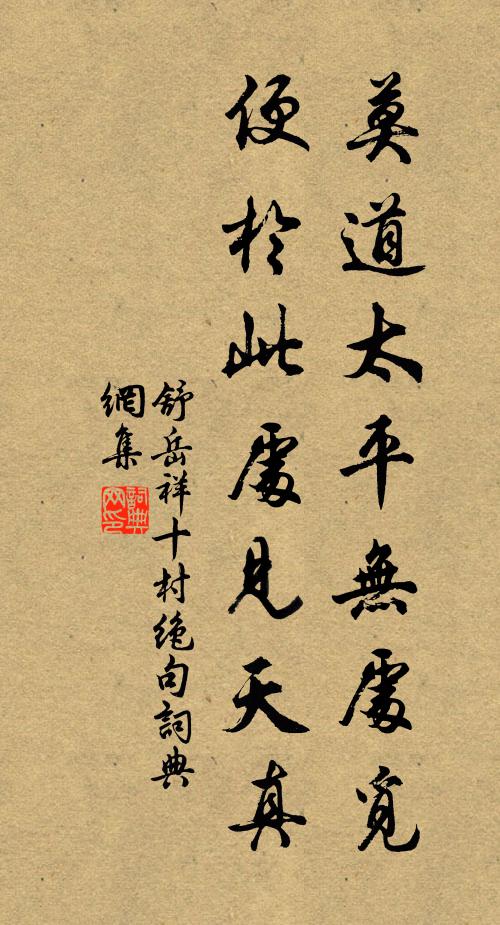 莫道太平無處覓
便於此處見天真
舒岳祥十村絶句詞典
網集
詞典
网印